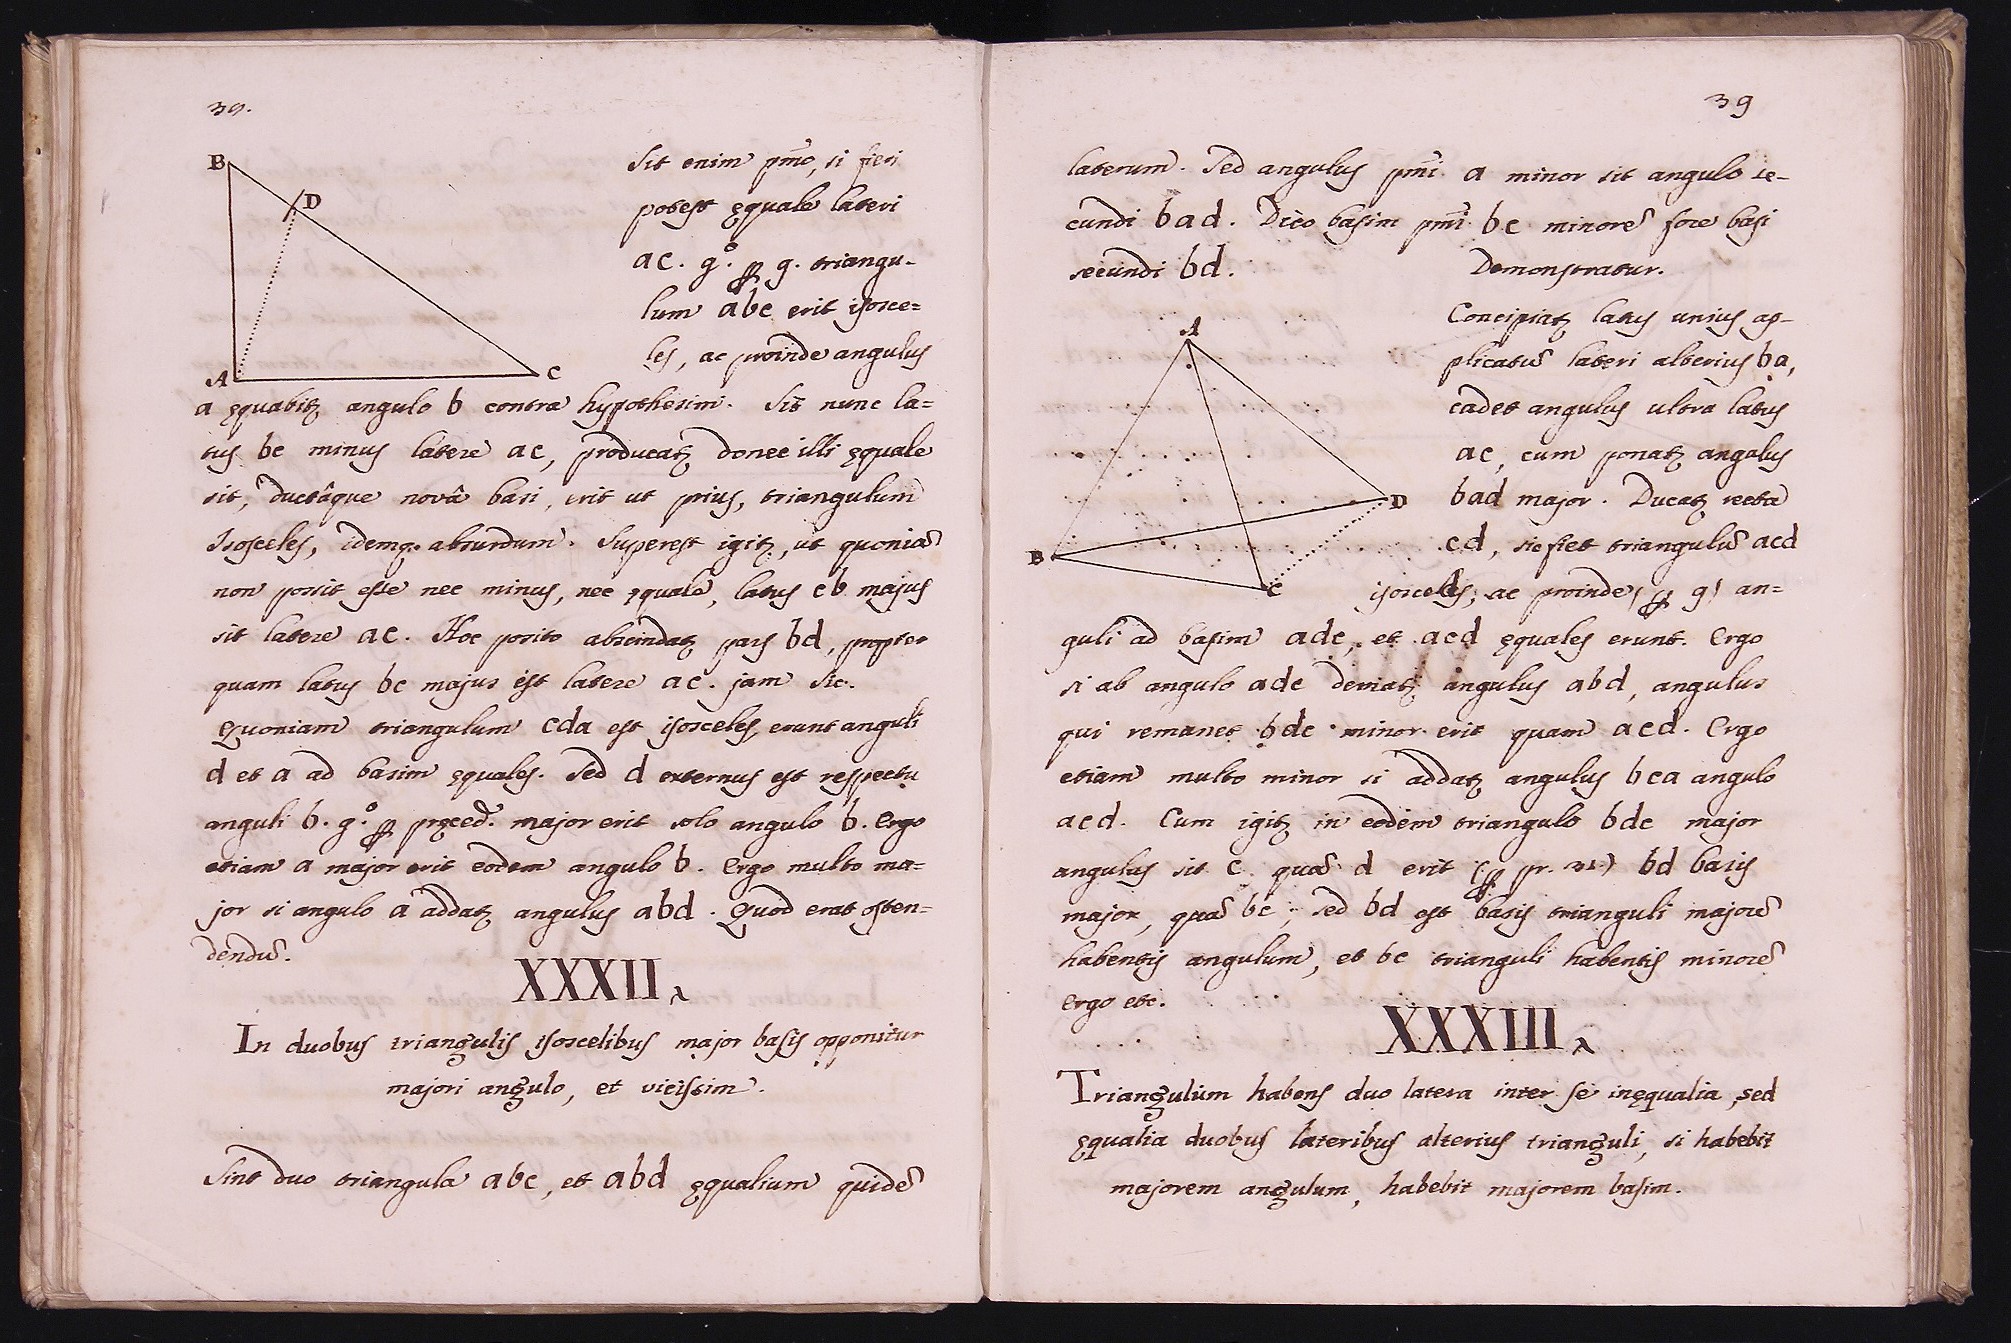 39.
B
D
A
C
Sit enim pm̃o, si fieri
potest ęquale lateri
ac. g.° ꝑ 9. triangu-
lum abc erit isosce=
les, ac proinde angulus
a ęquabitꝫ angulo b contra hypothesim. Sit nunc la=
tus bc minus latere ac, producatꝫ donec illi ęquale
sit, ductâque novâ basi, erit ut prius, triangulum
Isosceles, idemq. absurdum. Superest igitꝫ, ut quoniã
non possit esse nec minus, nec ęquale, latus cb majus
sit latere ac. Hoc posito abscindatꝫ pars bd, propter
quam latus bc majus est latere ac. jam sic.
Quoniam triangulum cda est isosceles, erunt anguli
d et a ad basim ęquales. Sed d externus est respectu
anguli b. g.° ꝑ pręced. major erit solo angulo b. Ergo
etiam a major erit eodem angulo b. Ergo multo ma=
jor si angulo a addatꝫ angulus abd. Quod erat osten=
dendũ.
XXXII
In duobus triangulis isoscelibus major basis opponitur
majori angulo, et vicissim.
Sint duo triangula abc, et abd ęqualium quidẽ
39
laterum. Sed angulus pm̃i a minor sit angulo se-
cundi bad. Dico basim pm̃i bc minorẽ fore basi
secundi bd. Demonstratur.
A
B
C
D
Concipiatꝫ latus unius ap-
plicatũ lateri alterius ba,
cadet angulus ultra latus
ac, cum ponatꝫ angulus
bad major. Ducatꝫ recta
cd, sic fiet triangulũ acd
isosceles; ac proinde (ꝑ 9) an=
guli ad basim adc, et acd ęquales erunt. Ergo
si ab angulo adc dematꝫ angulus abd, angulus
qui remanet bdc minor erit quam acd. Ergo
etiam multo minor si addatꝫ angulus bca angulo
acd. Cum igitꝫ in eodem triangulo bdc major
angulus sit c quã d erit (ꝑ pr. 31.) bd basis
major, quã bc; sed bd est basis trianguli majorẽ
habentis angulum, et bc trianguli habentis minorẽ
Ergo etc.
XXXIII
Triangulum habens duo latera inter se inęqualia, sed
ęqualia duobus lateribus alterius trianguli, si habebit
majorem angulum, habebit majorem basim.